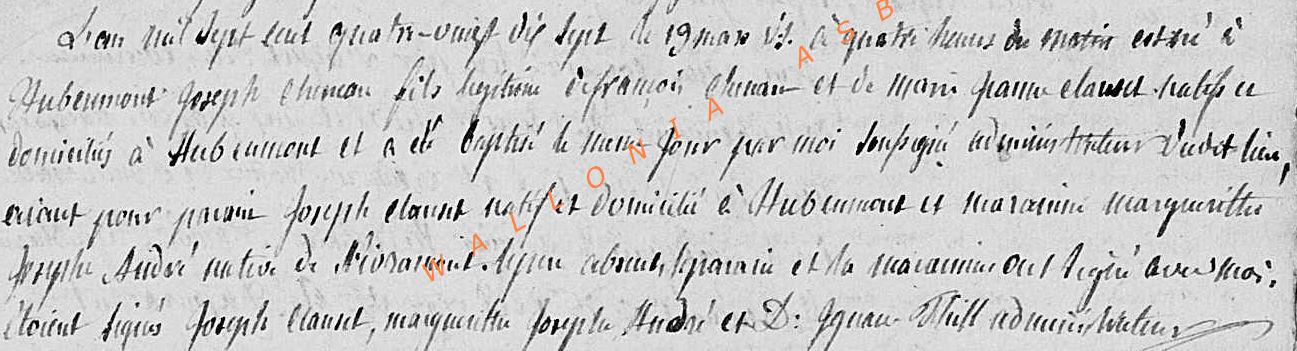 L'an mil sept cent quatre-vingt dix sept le 19 mars v.s. à quatre heures du matin est né à
Hubermont Joseph fils legitime de françois et de marie jeanne clausset natifs et
domiciliés à Hubermont et a été baptisé le meme jour par moi soussigné administrateur dudit lieu,
aiant pour parain Joseph clausset natif et domicilié à Hubermont et maraine margueritte
Josephe André native de le pere absent, le parain et la maraine ont signé avec moi.
étoient signés Joseph Clausset, margueritte Josephe André et D: administrateur
WALLONIA ASB